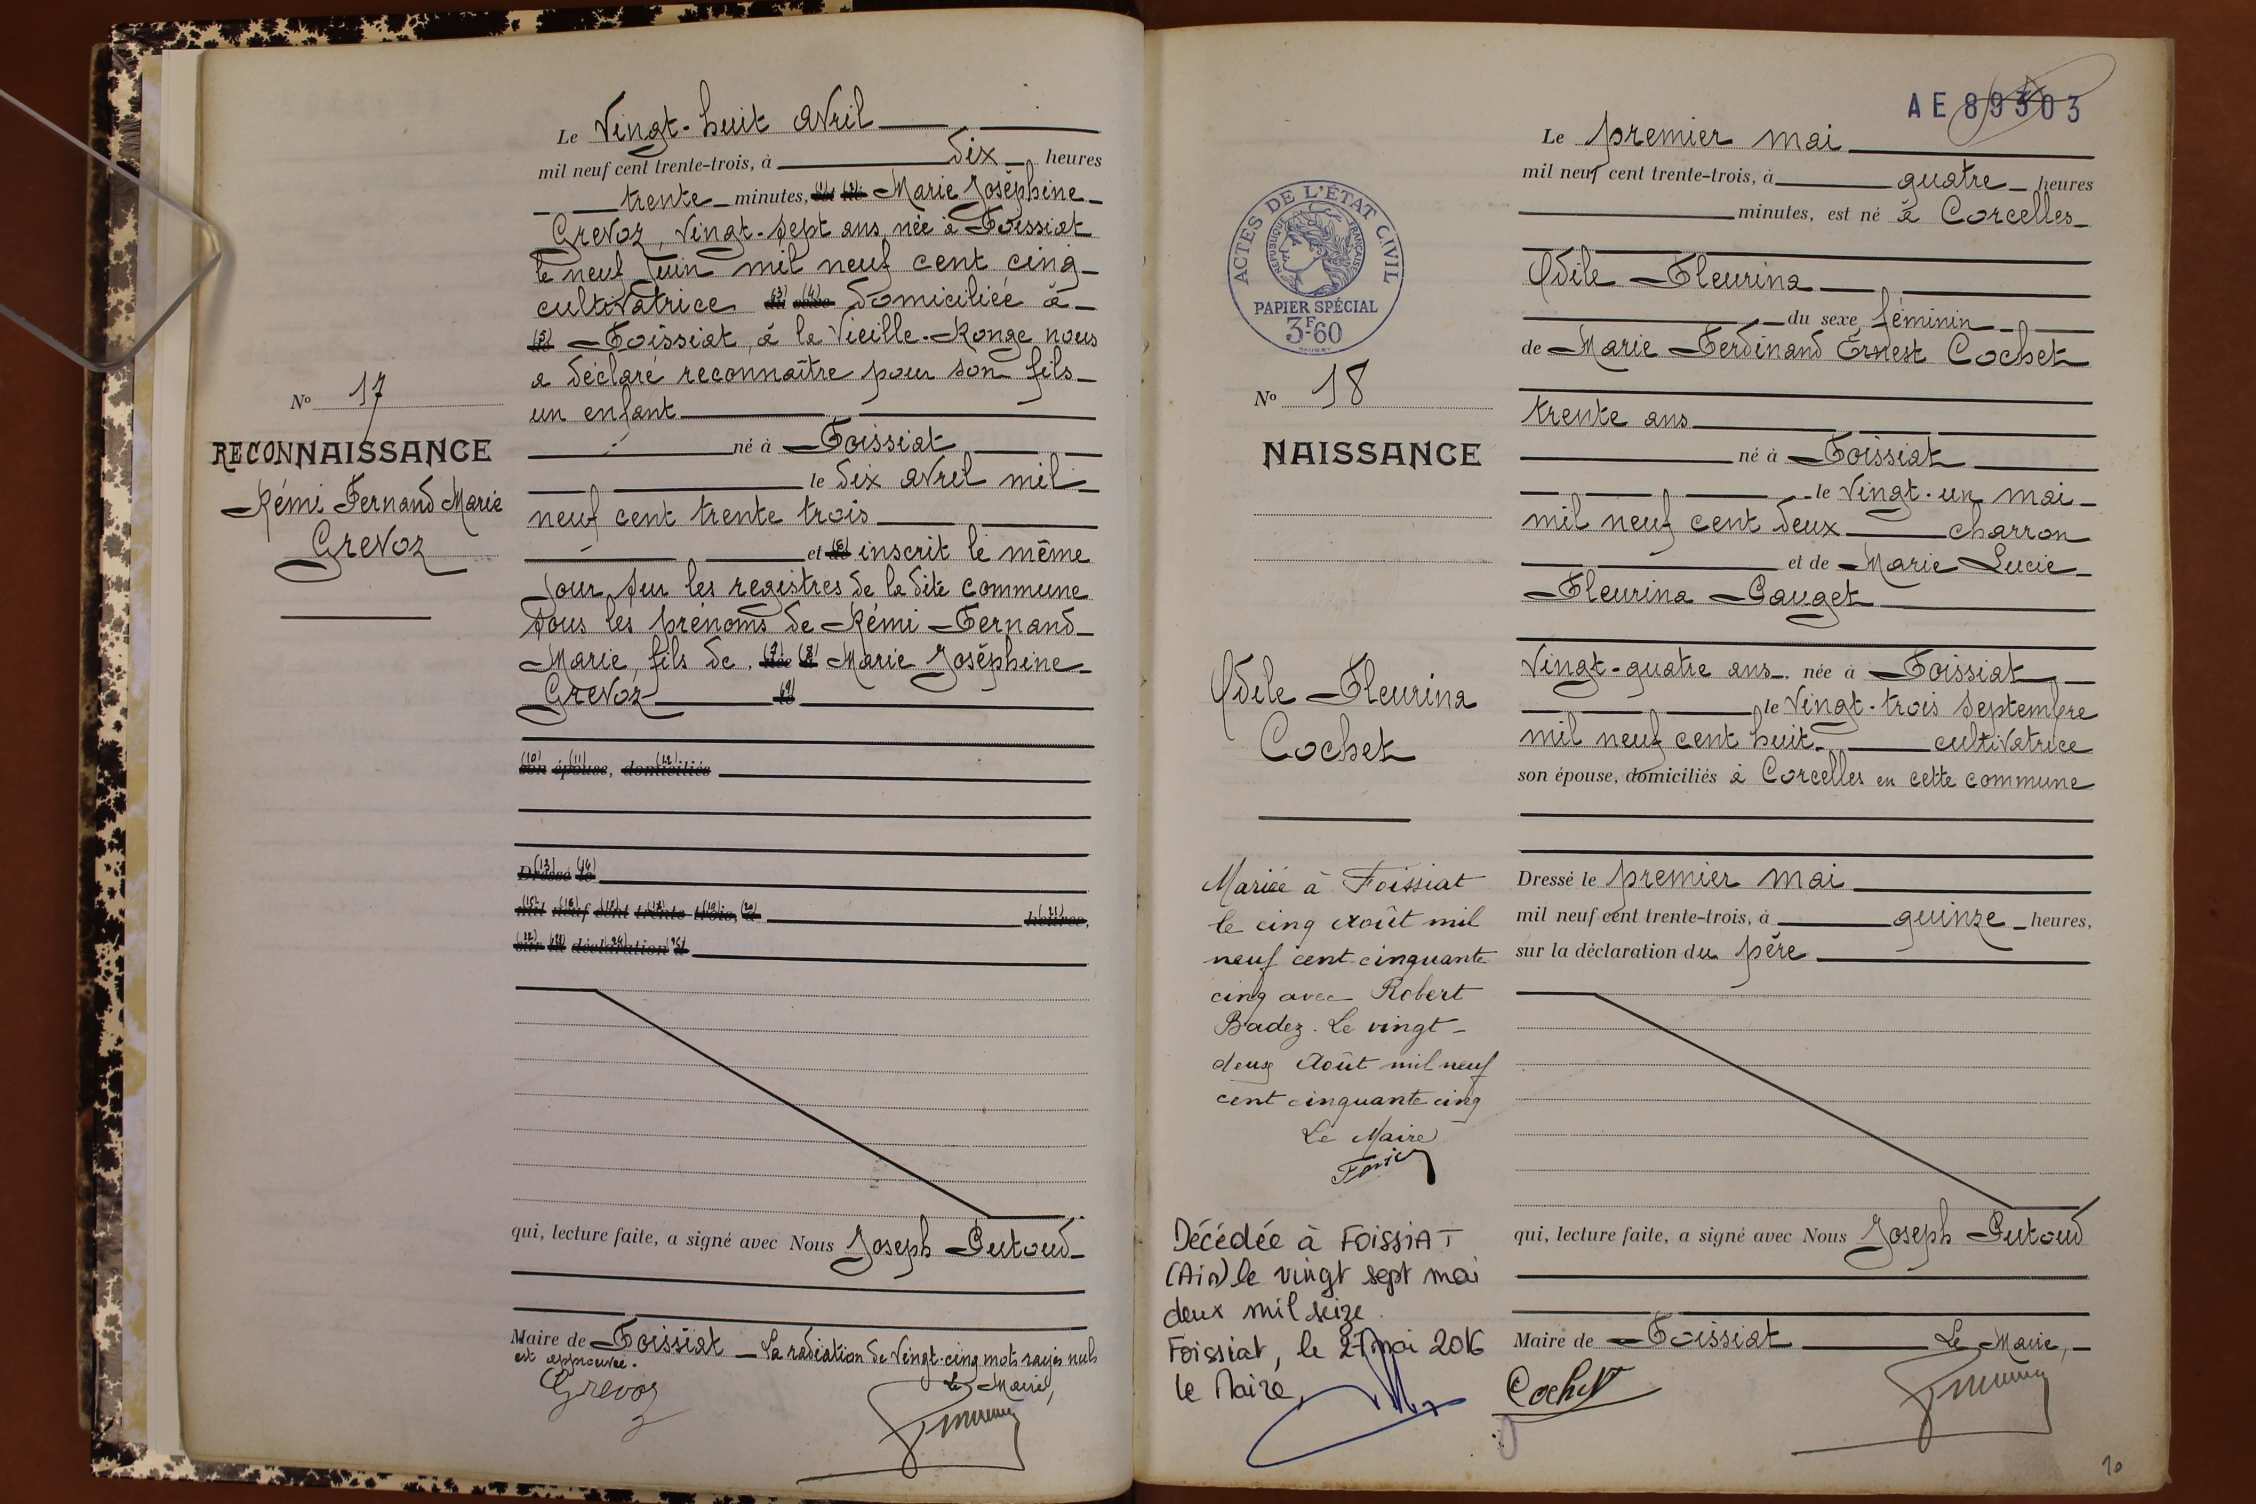 Le Vingt-huit avril
mil neuf cent trente-trois, à dix heures
trente minutes, Marie Joséphine
Grevoz, vingt-sept ans, née à Foissiat
le neuf Juin mil neuf cent cinq
cultivatrice (3) (4) domiciliée à
(5) Foissiat, à la Vieille-Ronge nous
a déclaré reconnaître pour son fils
un enfant
né à Foissiat
le dix avril mil
neuf cent trente trois
et (6) inscrit le même
Jour sur les registres de la dite commune
sous les prénoms de Rémi Fernand
Marie, fils de (7) (8) Marie Joséphine
Grevoz (9)
(10) (11) (12)
son épouse, domiciliés
(13) (14)
Dressé le
mil neuf cent trente-trois, à heures,
sur la déclaration d
qui, lecture faite, a signé avec Nous Joseph Putoud
Maire de Foissiat La radiation de vingt-cinq mots rayés nuls
est approuvée.
Le Maire,
Grevoz
N° 17
RECONNAISSANCE
Rémi Fernand Marie
Grevoz
AE 89303
Le premier mai
mil neuf cent trente-trois, à quatre heures
minutes, est né à Corcelles
Odile Fleurina
du sexe féminin
de Marie Ferdinand Ernest Cochet
trente ans
né à Foissiat
le vingt-un mai
mil neuf cent deux charron
et de Marie Lucie
Fleurina Pauget
Vingt-quatre ans, née à Foissiat
le Vingt-trois septembre
mil neuf cent huit cultivatrice
son épouse, domiciliés à Corcelles en cette commune
Dressé le premier mai
mil neuf cent trente-trois, à quinze heures,
sur la déclaration du père
qui, lecture faite, a signé avec Nous Joseph Putoud
Maire de Foissiat Le Maire,
Cochet
ACTES DE L'ÉTAT CIVIL
RÉPUBLIQUE FRANÇAISE
PAPIER SPÉCIAL
3F.60
N° 18
NAISSANCE
Odile Fleurina
Cochet
Mariée à Foissiat
le cinq Août mil
neuf cent cinquante
cinq avec Robert
Badez. Le vingt-
deux Août mil neuf
cent cinquante cinq
Le Maire
Décédée à FOISSIAT
(Ain) le vingt sept mai
deux mil seize.
Foissiat, le 27 mai 2016
le Maire,
10